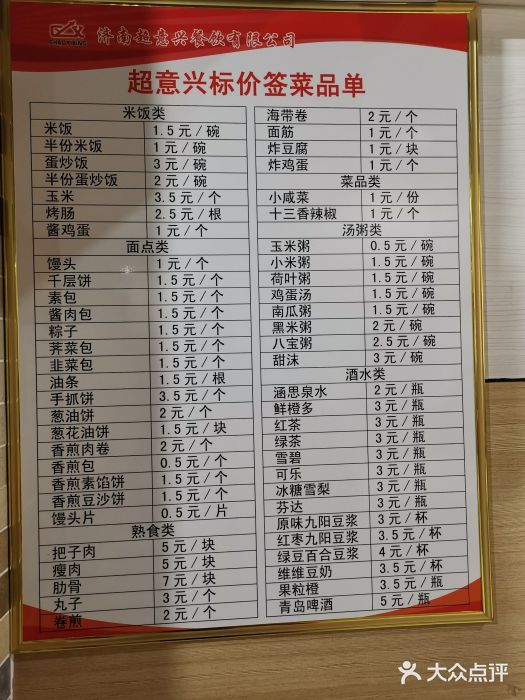 CHAOYIXING
济南超意兴餐饮有限公司
超意兴标价签菜品单
米饭类
米饭 1.5元/碗
半份米饭 1元/碗
蛋炒饭 3元/碗
半份蛋炒饭 2元/碗
玉米 3.5元/个
烤肠 2.5元/根
酱鸡蛋 1元/个
面点类
馒头 1元/个
千层饼 1.5元/个
素包 1.5元/个
酱肉包 1.5元/个
粽子 1.5元/个
荠菜包 1.5元/个
韭菜包 1.5元/个
油条 1.5元/根
手抓饼 3.5元/个
葱油饼 2元/个
葱花油饼 1.5元/块
香煎肉卷 2元/个
香煎包 0.5元/个
香煎素馅饼 1.5元/个
香煎豆沙饼 1.5元/个
馒头片 0.5元/片
熟食类
把子肉 5元/块
瘦肉 5元/块
肋骨 7元/块
丸子 3元/个
卷煎 2元/个
海带卷 2元/个
面筋 1元/个
炸豆腐 1元/块
炸鸡蛋 1元/个
菜品类
小咸菜 1元/份
十三香辣椒 1元/个
汤粥类
玉米粥 0.5元/碗
小米粥 1.5元/碗
荷叶粥 1.5元/碗
鸡蛋汤 1.5元/碗
南瓜粥 1.5元/碗
黑米粥 2元/碗
八宝粥 2.5元/碗
甜沫 3元/碗
酒水类
涵思泉水 2元/瓶
鲜橙多 3元/瓶
红茶 3元/瓶
绿茶 3元/瓶
雪碧 3元/瓶
可乐 3元/瓶
冰糖雪梨 3元/瓶
芬达 3元/瓶
原味九阳豆浆 3元/杯
红枣九阳豆浆 3.5元/杯
绿豆百合豆浆 4元/杯
维维豆奶 3.5元/杯
果粒橙 3.5元/瓶
青岛啤酒 5元/瓶
大众点评